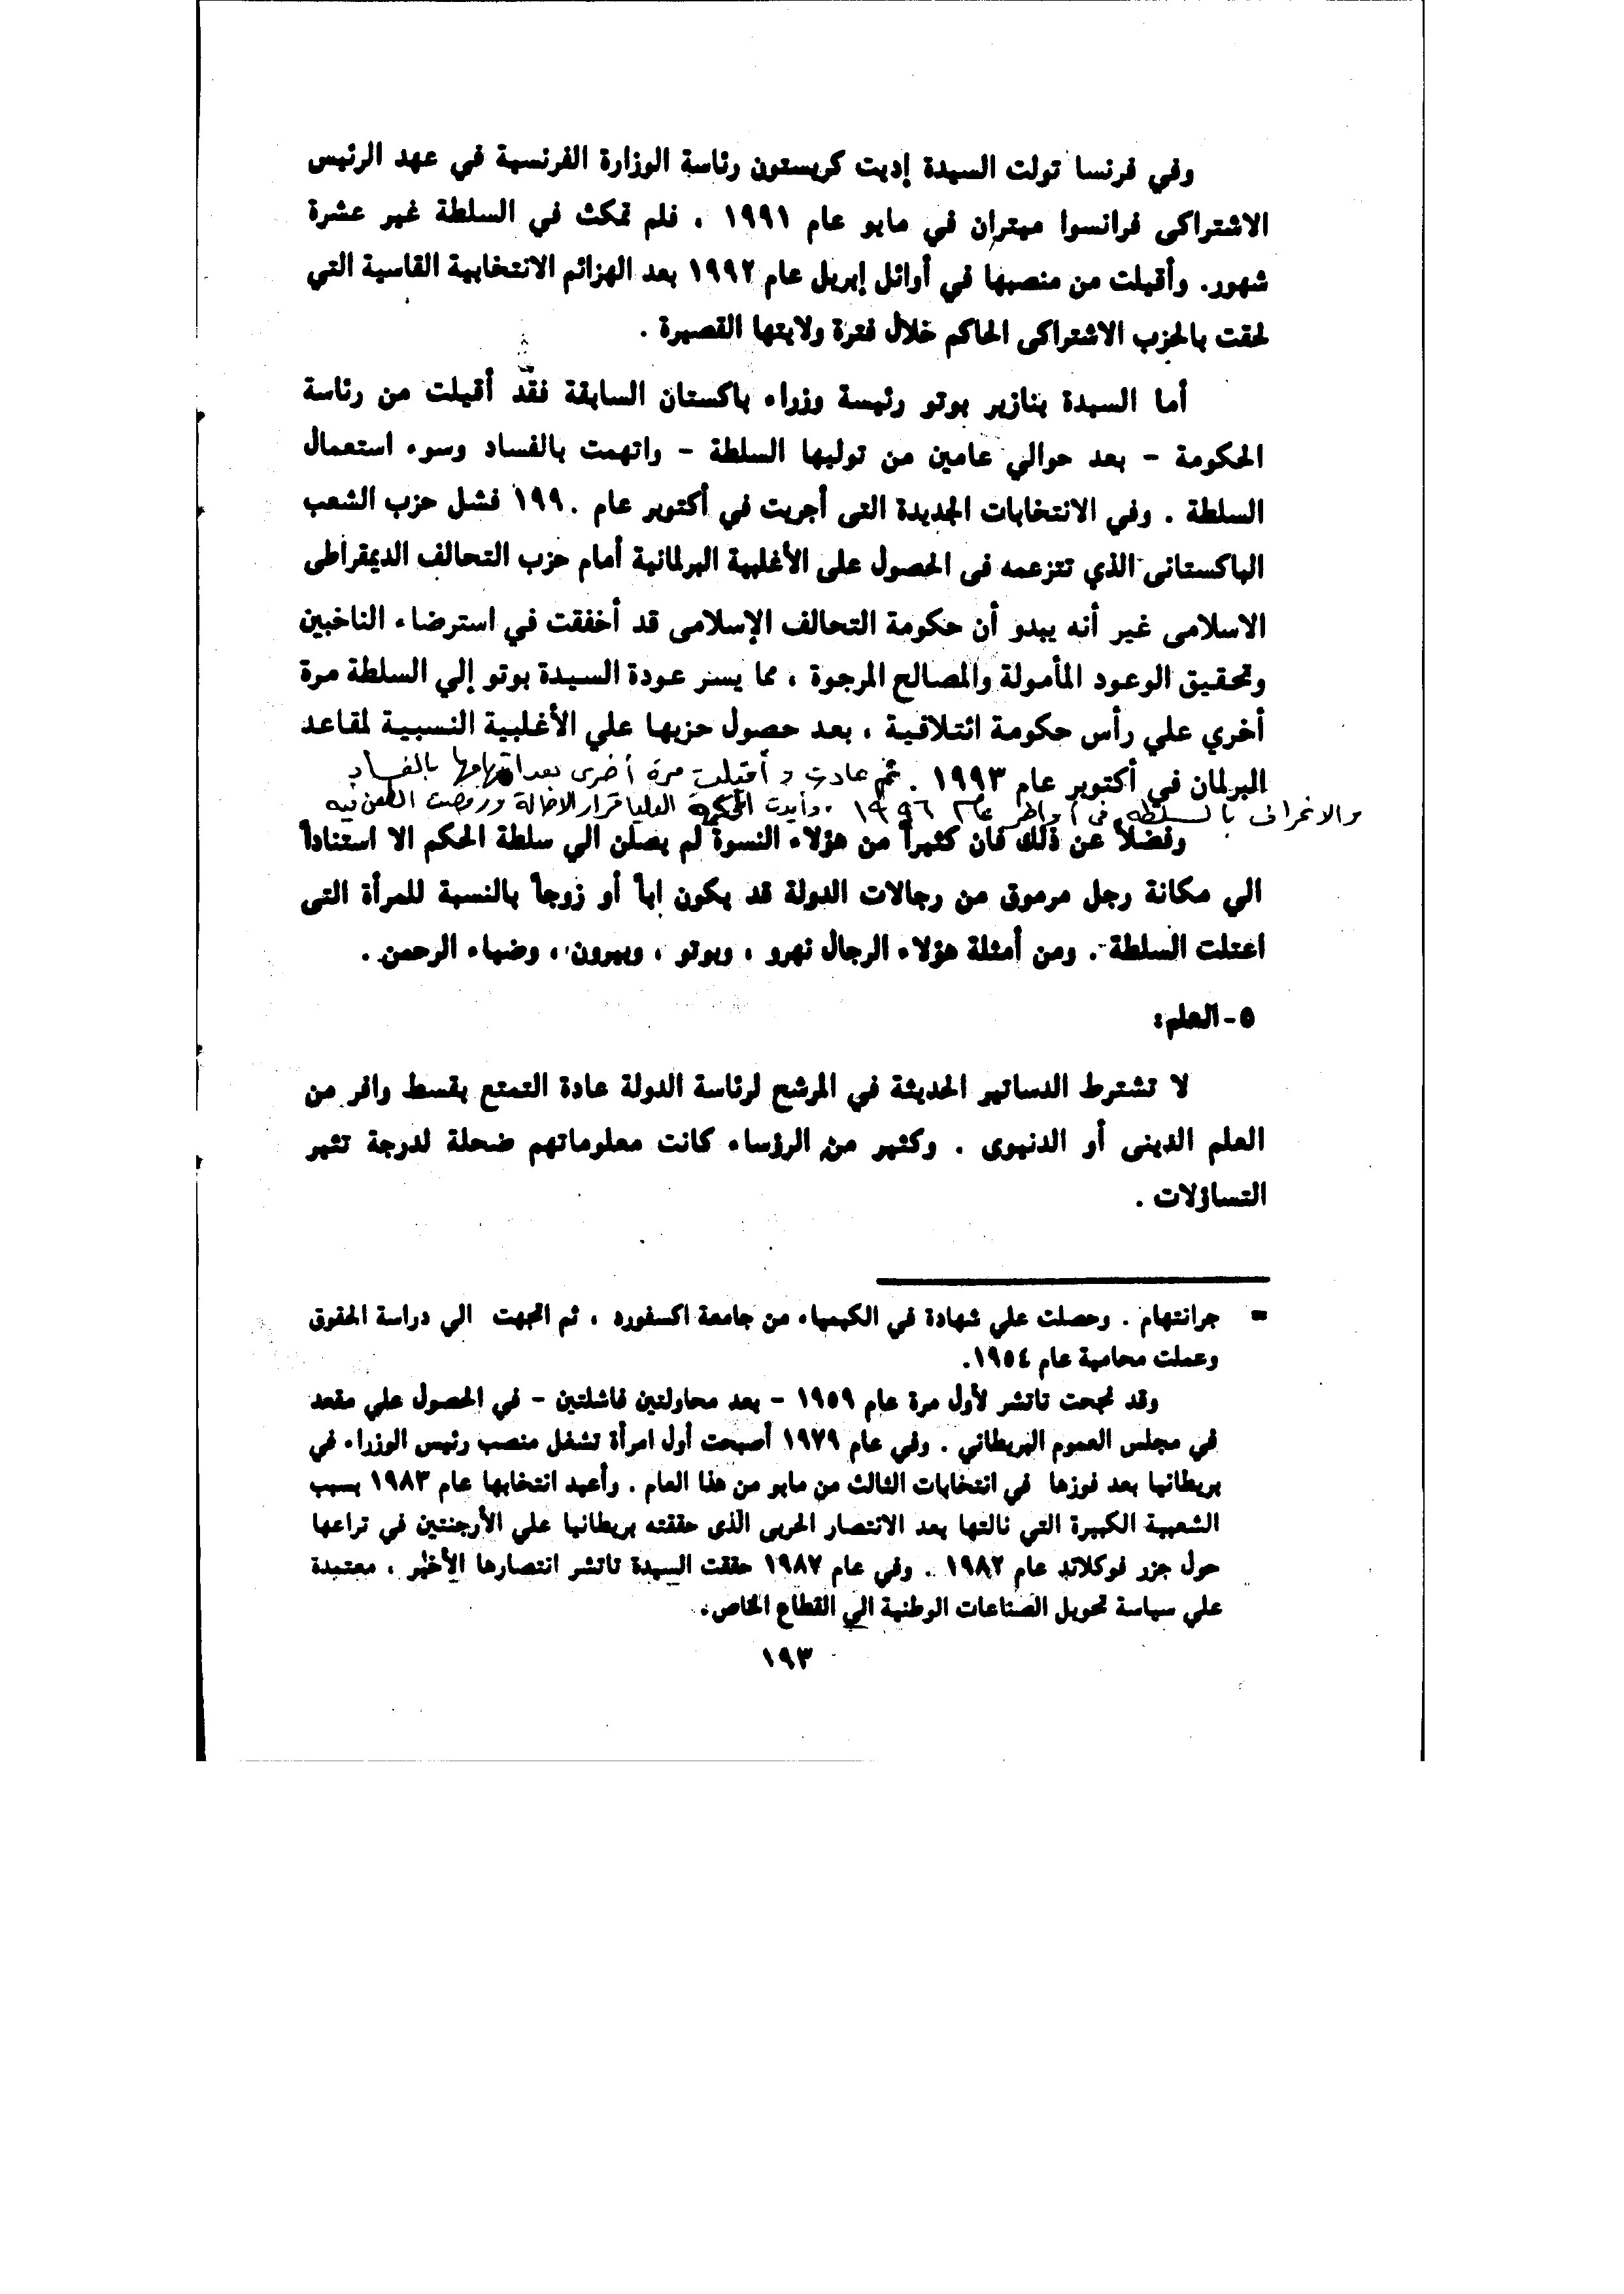 وفي فرنسا تولت السيدة إديت كريستون رئاسة الوزارة الفرنسية في عهد الرئيس
الاشتراكى فرانسوا ميتران في مايو عام ١٩٩١ ، فلم تمكث في السلطة غير عشرة
شهور. وأقيلت من منصبها في أوائل إبريل عام ١٩٩٢ بعد الهزائم الانتخابية القاسية التي
لحقت بالحزب الاشتراكى الحاكم خلال فترة ولايتها القصيرة .
أما السيدة بنازير بوتو رئيسة وزراء باكستان السابقة فقد أقيلت من رئاسة
الحكومة - بعد حوالي عامين من توليها السلطة - واتهمت بالفساد وسوء استعمال
السلطة . وفي الانتخابات الجديدة التى أجريت في أكتوبر عام ١٩٩٠ فشل حزب الشعب
الباكستانى الذي تتزعمه فى الحصول على الأغلبية البرلمانية أمام حزب التحالف الديمقراطى
الاسلامى غير أنه يبدو أن حكومة التحالف الإسلامى قد أخفقت في استرضاء الناخبين
وتحقيق الوعود المأمولة والمصالح المرجوة ، مما يسر عودة السيدة بوتو إلي السلطة مرة
أخري علي رأس حكومة ائتلافية ، بعد حصول حزبها علي الأغلبية النسبية لمقاعد
البرلمان في أكتوبر عام ١٩٩٣ . ثم عادت وأقيلت مرة أخرى بعد اتهامها بالفساد
والانحراف بالسلطة فى أواخر عام ١٩٩٦ . وأيدت المحكمة العليا قرار الاقالة ورفضت الطعن فيه
وفضلاً عن ذلك فان كثيراً من هؤلاء النسوة لم يصلن الي سلطة الحكم الا استناداً
الي مكانة رجل مرموق من رجالات الدولة قد يكون اباً أو زوجاً بالنسبة للمرأة التى
اعتلت السلطة . ومن أمثلة هؤلاء الرجال نهرو ، وبوتو ، وبيرون ، وضياء الرحمن .
٥ - العلم:
لا تشترط الدساتير الحديثة في المرشح لرئاسة الدولة عادة التمتع بقسط وافر من
العلم الدينى أو الدنيوى . وكثير من الرؤساء كانت معلوماتهم ضحلة لدرجة تثير
التساؤلات .
= جرانتهام . وحصلت علي شهادة في الكيمياء من جامعة اكسفورد ، ثم اتجهت الي دراسة الحقوق
وعملت محامية عام ١٩٥٤.
وقد نجحت تاتشر لأول مرة عام ١٩٥٩ - بعد محاولتين فاشلتين - في الحصول علي مقعد
في مجلس العموم البريطاني . وفي عام ١٩٧٩ أصبحت أول امرأة تشغل منصب رئيس الوزراء في
بريطانيا بعد فوزها في انتخابات الثالث من مايو من هذا العام . وأعيد انتخابها عام ١٩٨٣ بسبب
الشعبية الكبيرة التي نالتها بعد الانتصار الحربى الذى حققته بريطانيا علي الأرجنتين في نزاعها
حول جزر فوكلاند عام ١٩٨٢ . وفي عام ١٩٨٧ حققت السيدة تاتشر انتصارها الأخير ، معتمدة
علي سياسة تحويل الصناعات الوطنية الي القطاع الخاص.
١٩٣